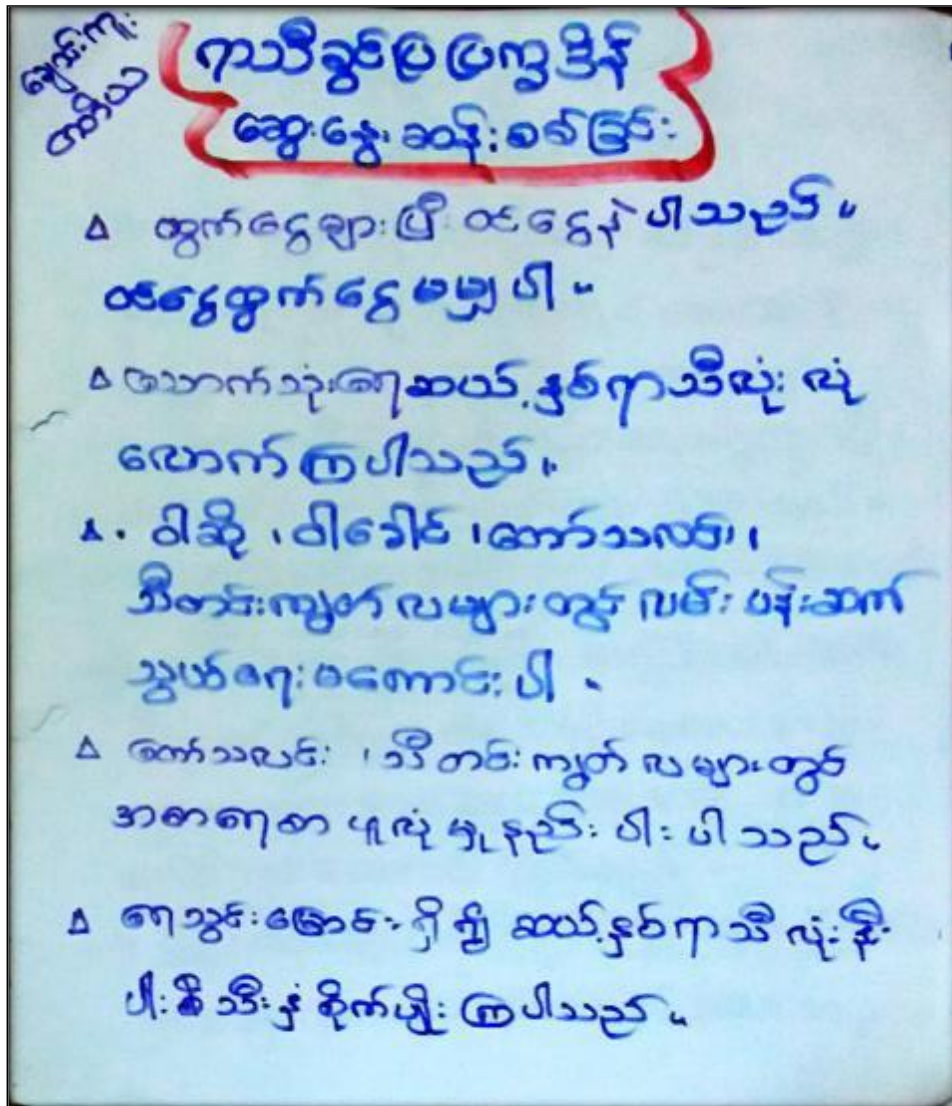 ချောင်းကူး
တတိယ
ရာသီခွင်ပြ ပြက္ခဒိန်
ဆွေးနွေး ဆန်းစစ်ခြင်း
∆ ထွက်ငွေများပြီး ဝင်ငွေနဲပါသည်။
ဝင်ငွေထွက်ငွေ မမျှပါ။
∆ သောက်သုံးရေဆယ့်နှစ်ရာသီလုံး လုံ
လောက်ကြပါသည်။
∆. ဝါဆို ၊ ဝါခေါင် ၊ တော်သလင်း ၊
သီတင်းကျွတ် လများတွင် လမ်းပန်းဆက်
သွယ်ရေး မကောင်းပါ။
∆ တော်သလင်း ၊ သီတင်းကျွတ် လများတွင်
အစာရေစာ ဖူလုံမှုနည်းပါးပါသည်။
∆ ရေသွင်းမြောင်းရှိ၍ ဆယ့်နှစ်ရာသီလုံး နီး
ပါးစီသီးနှံ စိုက်ပျိုးကြပါသည်။